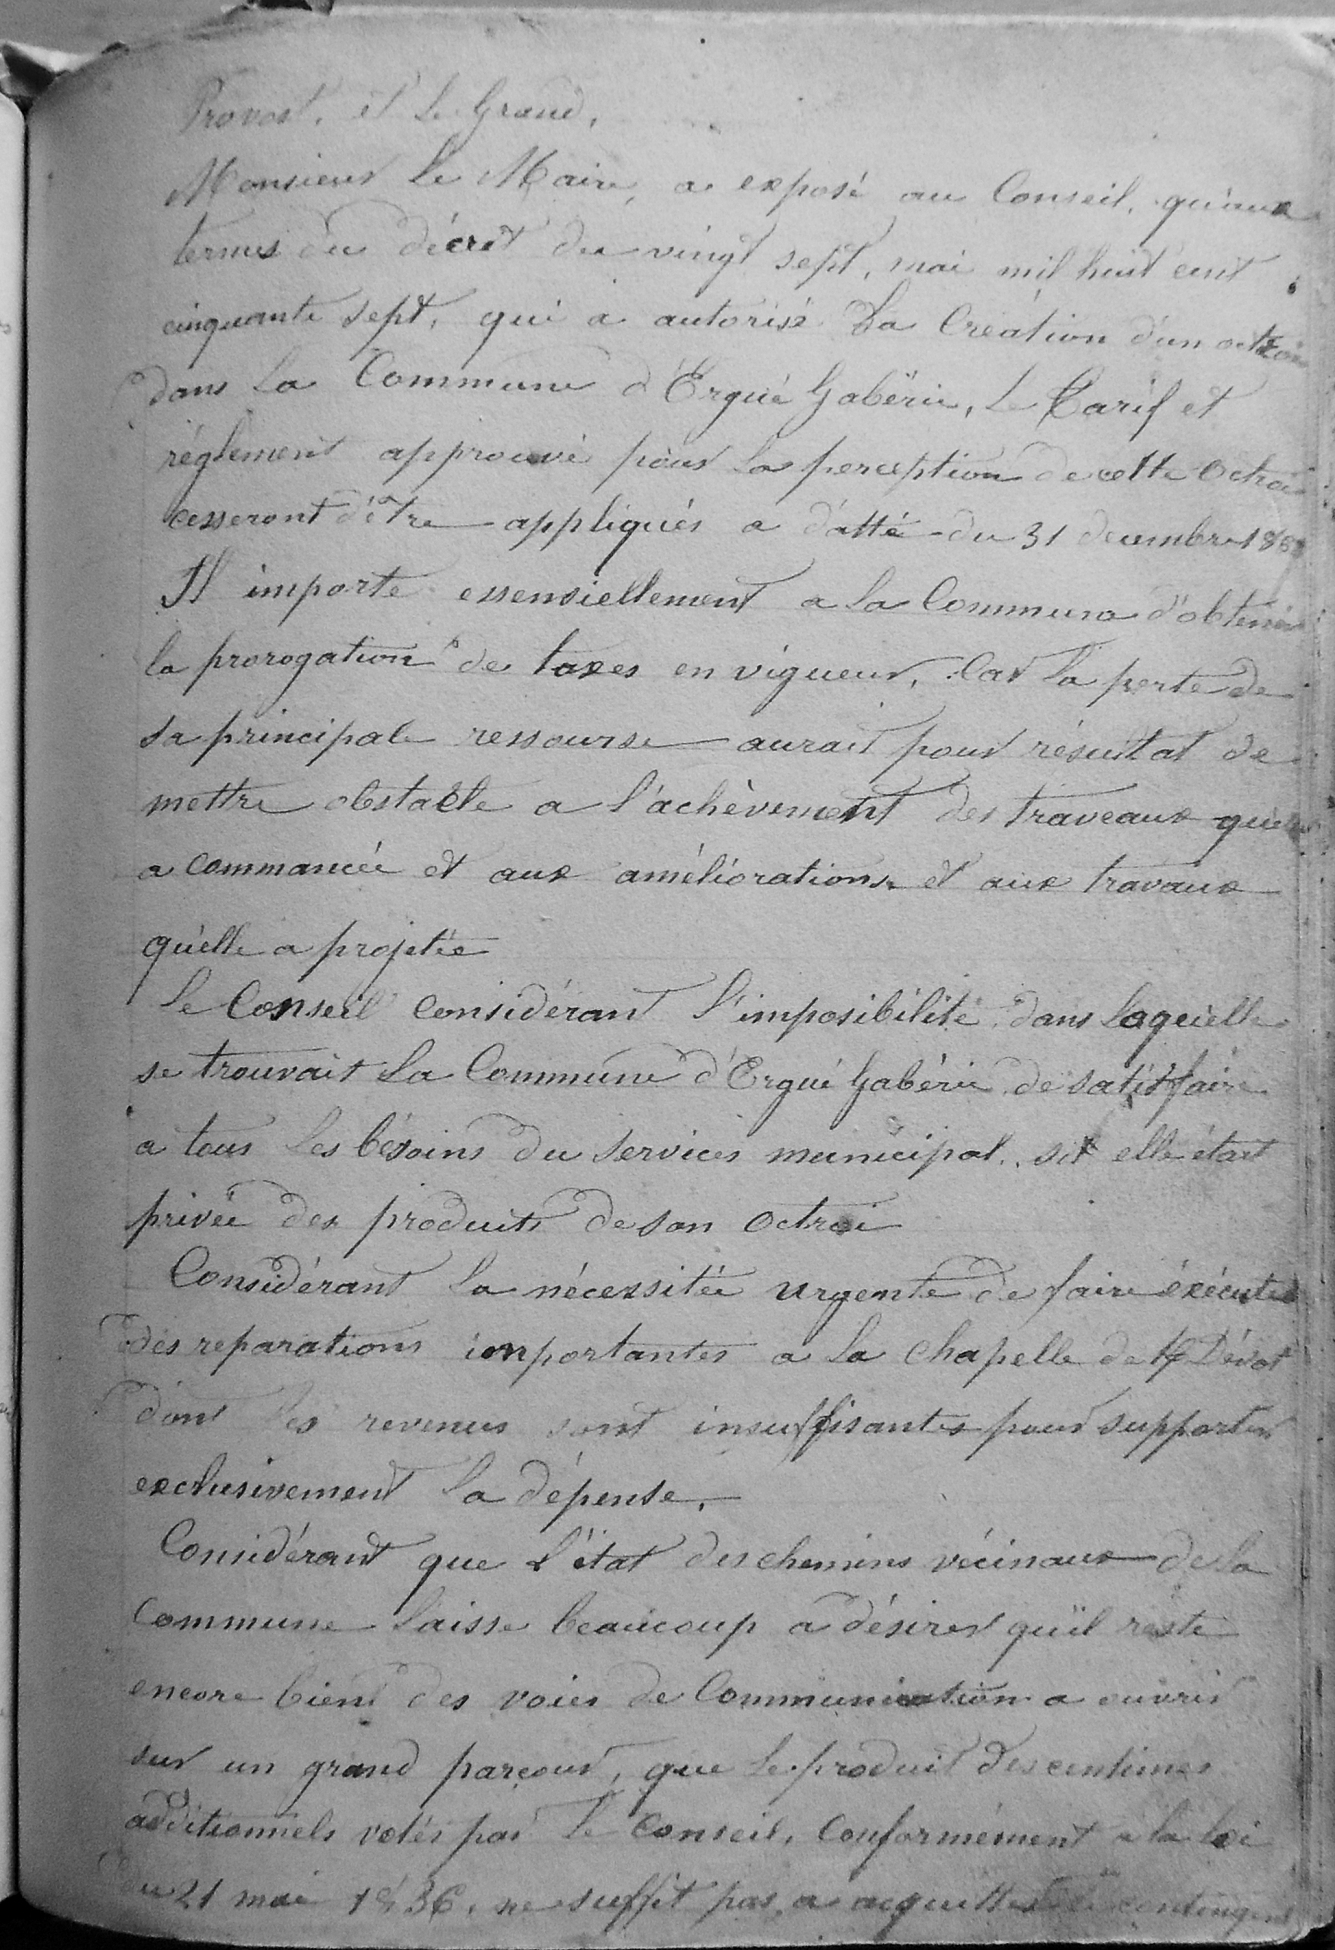 Provost, et Le Grand,
Monsieur le Maire, a exposé au Conseil, qu'aux
termes du décret du vingt sept, mai mil huit cent
cinquante sept, qui a autorisé la Création d'un octroi
dans la Commune d'Ergué Gabéric, le tarif et
réglement approuvé pour la perception de cette octroi
cesseront d'être appliqués a datté du 31 decembre
Il importe essensiellement a la Commune d'obtenir
la prorogation de taxes en vigueur, Car la perte de
sa principale ressourse aurait pour résultat de
mettre obstacle a l'achèvement des traveaux qu'elle
a commancée et aux améliorations et aux travaux
qu'elle a projetée
Le Conseil considérant l'imposibilité dans laquelle
se trouvait la Commune d'Ergué Gabéric de satisfaire
a tous les bésoins du services municipal. si elle était
privée des produits de son octroi
Considérant la nécessitée urgente de faire éxécuter
des reparations importantes a la chapelle de Dévot
dont les revenus sont insuffisantes pour supporter
exclusivement la dépense.
Considérant que l'état des chemins vécinaux de la
Commune laisse beaucoup a désirer qu'il reste
encore bient des voies de Communication a ouvrir
sur un grand parcour, que le produit des centimes
additionnels votés par le Conseil, Conformément a la loi
du 21 mai 1836, ne suffit pas a acquitter le contingent